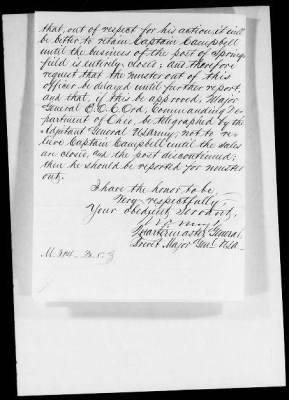 that, out of respect for his action, it will
be better to retain Captain Campbell
until the business of the post of Spring
field is entirely closed; and therefore
request that the muster out of this
officer be delayed until further report,
and that, if this be approved, Major
General E.O.C. Ord, Commanding De-
partment of Ohio, be telegraphed by the
Adjutant General U.S. Army, not to re-
lieve Captain Campbell until the sales
are closed, and the post discontinued;
then he should be reported for muster
out.
I have the honor to be,
Very respectfully,
Your obedient Servant,
Quartermaster General,
Brevet Major Genl. U.S.A.